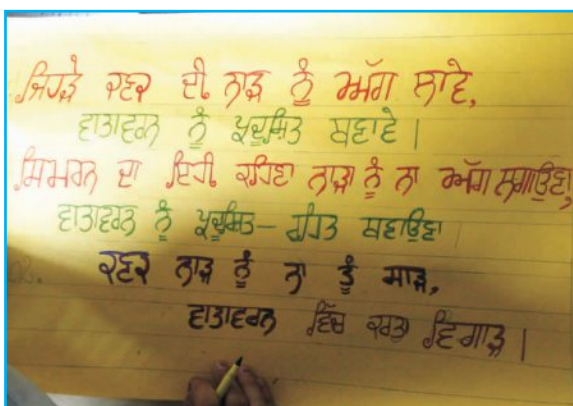 ਜਿਹੜੇ ਕਣਕ ਦੀ ਨਾੜ ਨੂੰ ਅੱਗ ਲਾਵੇ,
ਵਾਤਾਵਰਨ ਨੂੰ ਪ੍ਰਦੂਸ਼ਿਤ ਬਣਾਵੇ।
ਸਿਮਰਨ ਦਾ ਇਹੀ ਕਹਿਣਾ ਨਾੜਾ ਨੂੰ ਨਾ ਅੱਗ ਲਗਾਉਣਾ,
ਵਾਤਾਵਰਨ ਨੂੰ ਪ੍ਰਦੂਸ਼ਿਤ-ਰਹਿਤ ਬਣਾਉਣਾ
ਕਣਕ ਨਾੜ ਨੂੰ ਨਾ ਤੂੰ ਸਾੜ,
ਵਾਤਾਵਰਨ ਵਿੱਚ ਕਰਤਾ ਵਿਗਾੜ।